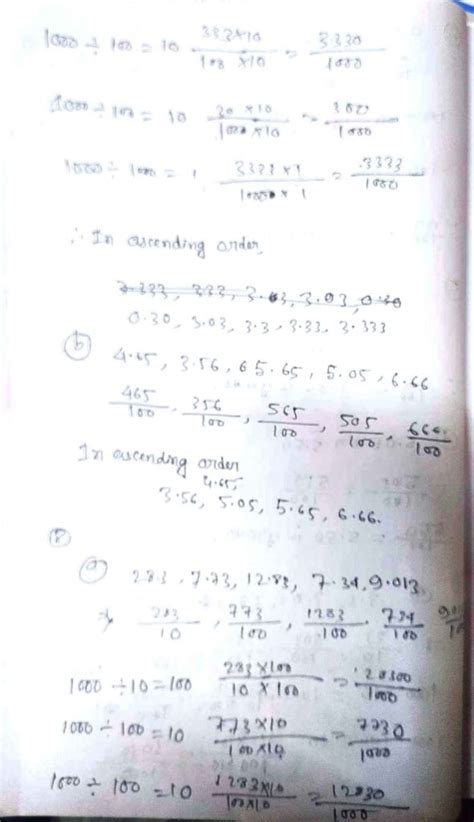 1000 ÷ 100 = 10 333×10/100×10 = 3330/1000
1000 ÷ 100 = 10 30×10/100×10 = 300/1000
1000 ÷ 1000 = 1 3333×1/1000×1 = 3333/1000
∴ In ascending order,
3.333, 333, 3.03, 0.30
0.30, 3.03, 3.3, 3.33, 3.333
(b) 4.65, 3.56, 65.65, 5.05, 6.66
465/100, 356/100, 565/100, 505/100, 666/100
In ascending order
4.65
3.56, 5.05, 5.65, 6.66.
(a) 28.3, 7.73, 12.83, 7.34, 9.013
⇒ 283/10, 773/100, 1283/100, 734/100
1000 ÷ 10 = 100 283×100/10×100 = 28300/1000
1000 ÷ 100 = 10 773×10/100×10 = 7730/1000
1000 ÷ 100 = 10 1283×10/100×10 = 12830/1000